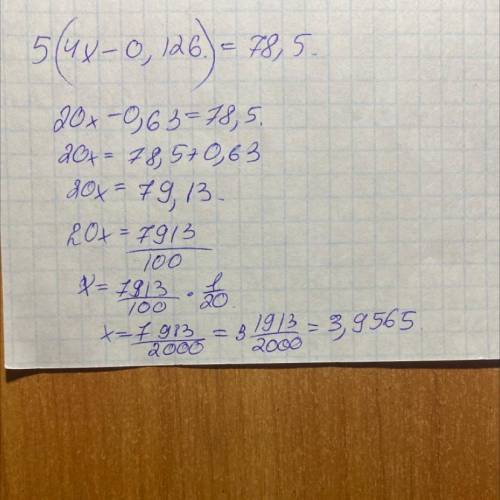 5(4x-0,126.)=78,5.
20x-0,63=78,5.
20x=78,5+0,63
20x=79,13.
20x=7913/100
x=7913/100·1/20.
x=7913/2000=3 1913/2000=3,9565.